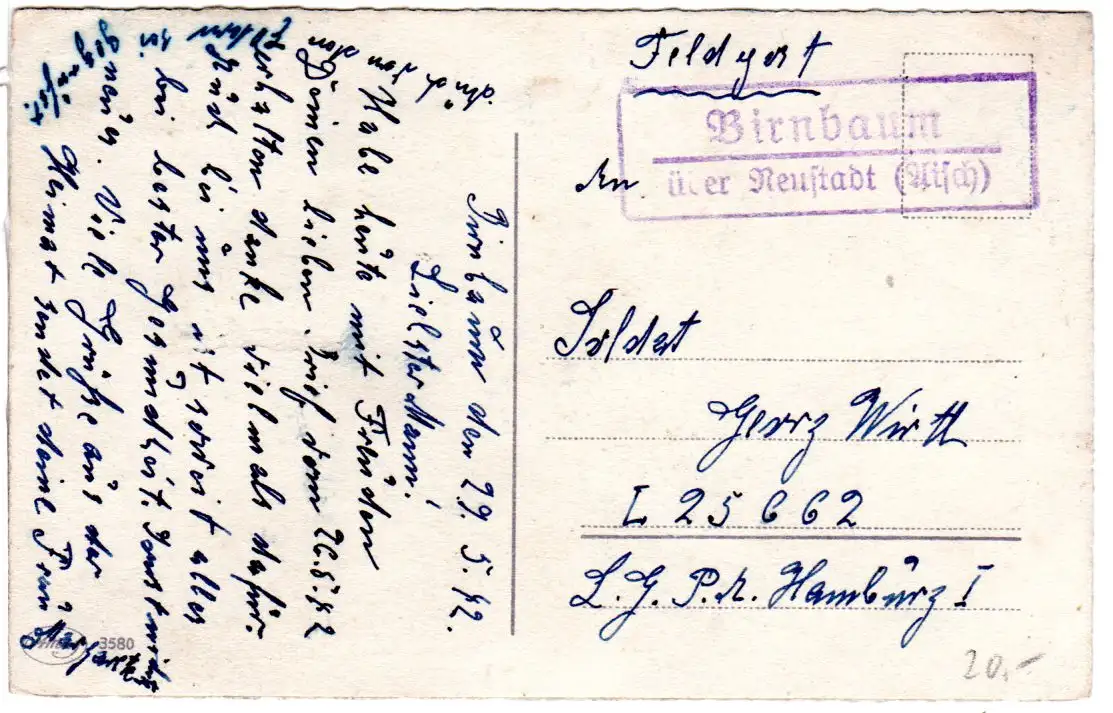 Feldpost
Birnbaum
über Neustadt (Aisch)
An
Soldat
Georg Wirth
L 25662
L.G.P.A. Hamburg I
20.-
Birnbaum den 29. 5. 42.
Liebster Mann!
Habe heute mit Freuden
Deinen lieben Brief vom 26.5.42
erhalten danke vielmals dafür.
Auch bei uns ist soweit alles
bei bester Gesundheit. Sonst nichts
neues. Viele Grüße aus der
Heimat sendet deine Frau
auch von den
Eltern
gegrüßt.
3580